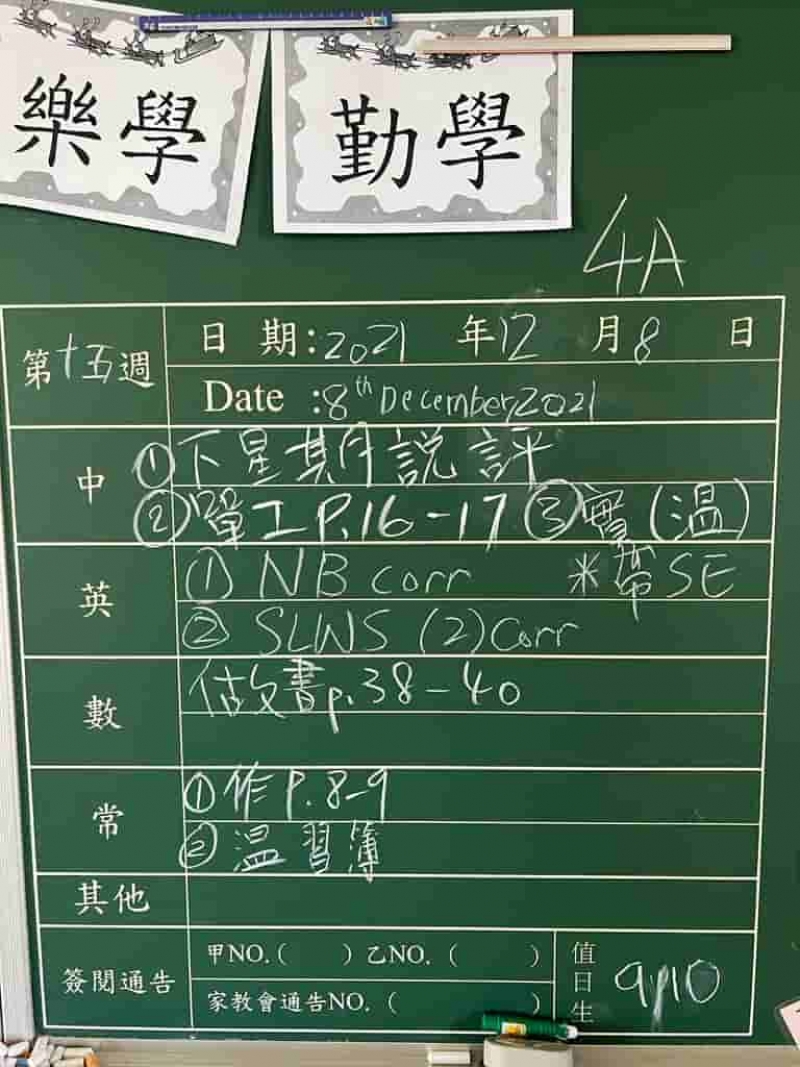 樂學 勤學
4A
第十五週
日 期：2021 年12 月8 日
Date ：8th December, 2021
中
①下星期説評
②單工P.16-17 ③實(温)
英
①NB corr *帶SE
② SLWS (2)Corr
數
做書p.38-40
常
①作P.8-9
②温習簿
其他
簽閱通告
甲NO.( ) 乙NO.( )
家教會通告NO.( )
值日生
9,10